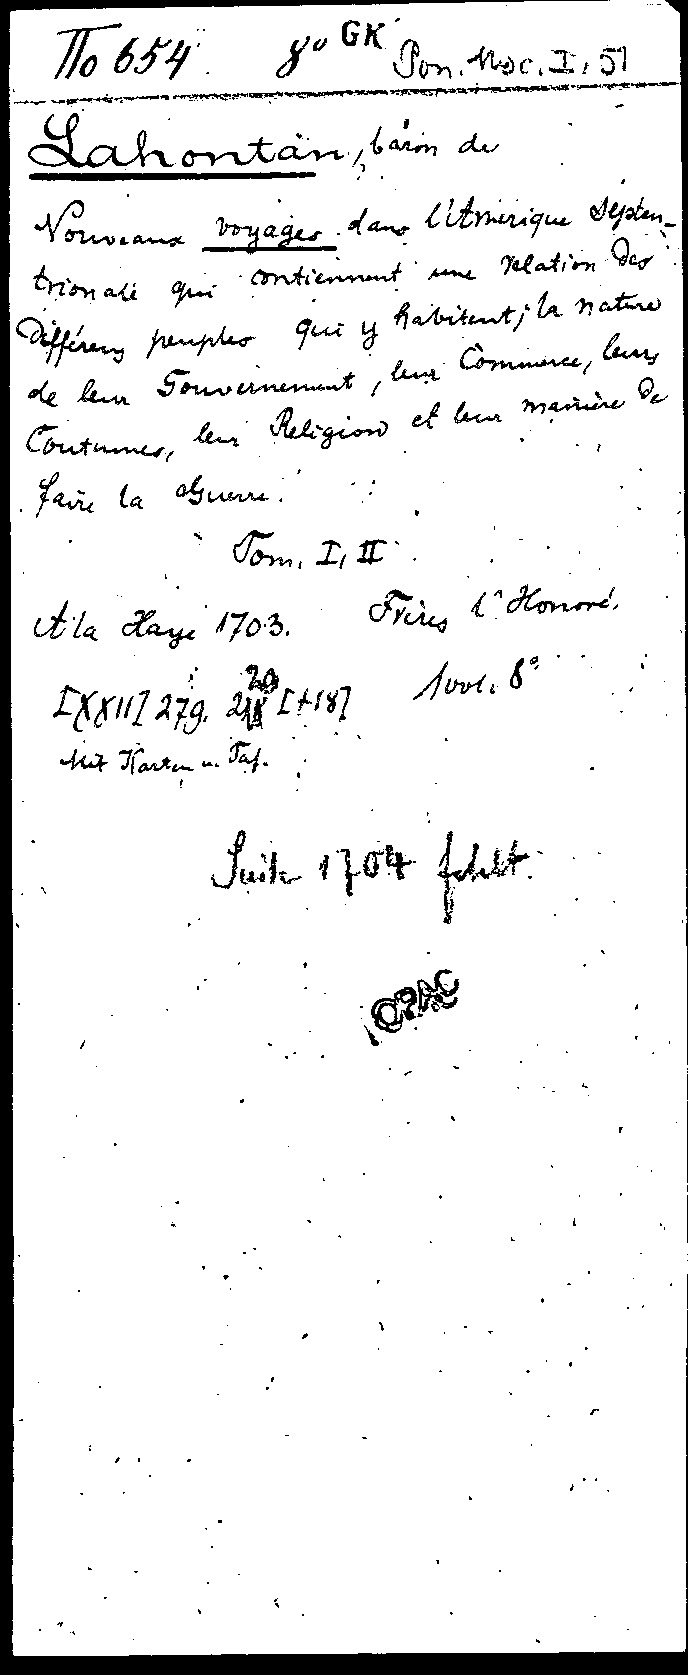 IIo 654 8° GK Pon. Msc. I, 51
Lahontan, baron de
Nouveaux voyages dans l'Amerique Septen-
trionale qui contiennent une relation des
différens peuples qui y habitent; la nature
de leur Gouvernement, leur Commerce, leurs
Coutumes, leur Religion et leur manière de
faire la Guerre.
Tom. I, II
A la Haye 1703. Frères l'Honoré.
[XXII] 279. 220 [+18] 1 vol. 8°
Mit Karten u. Taf.
Suite 1704 fehlt.
OPAC